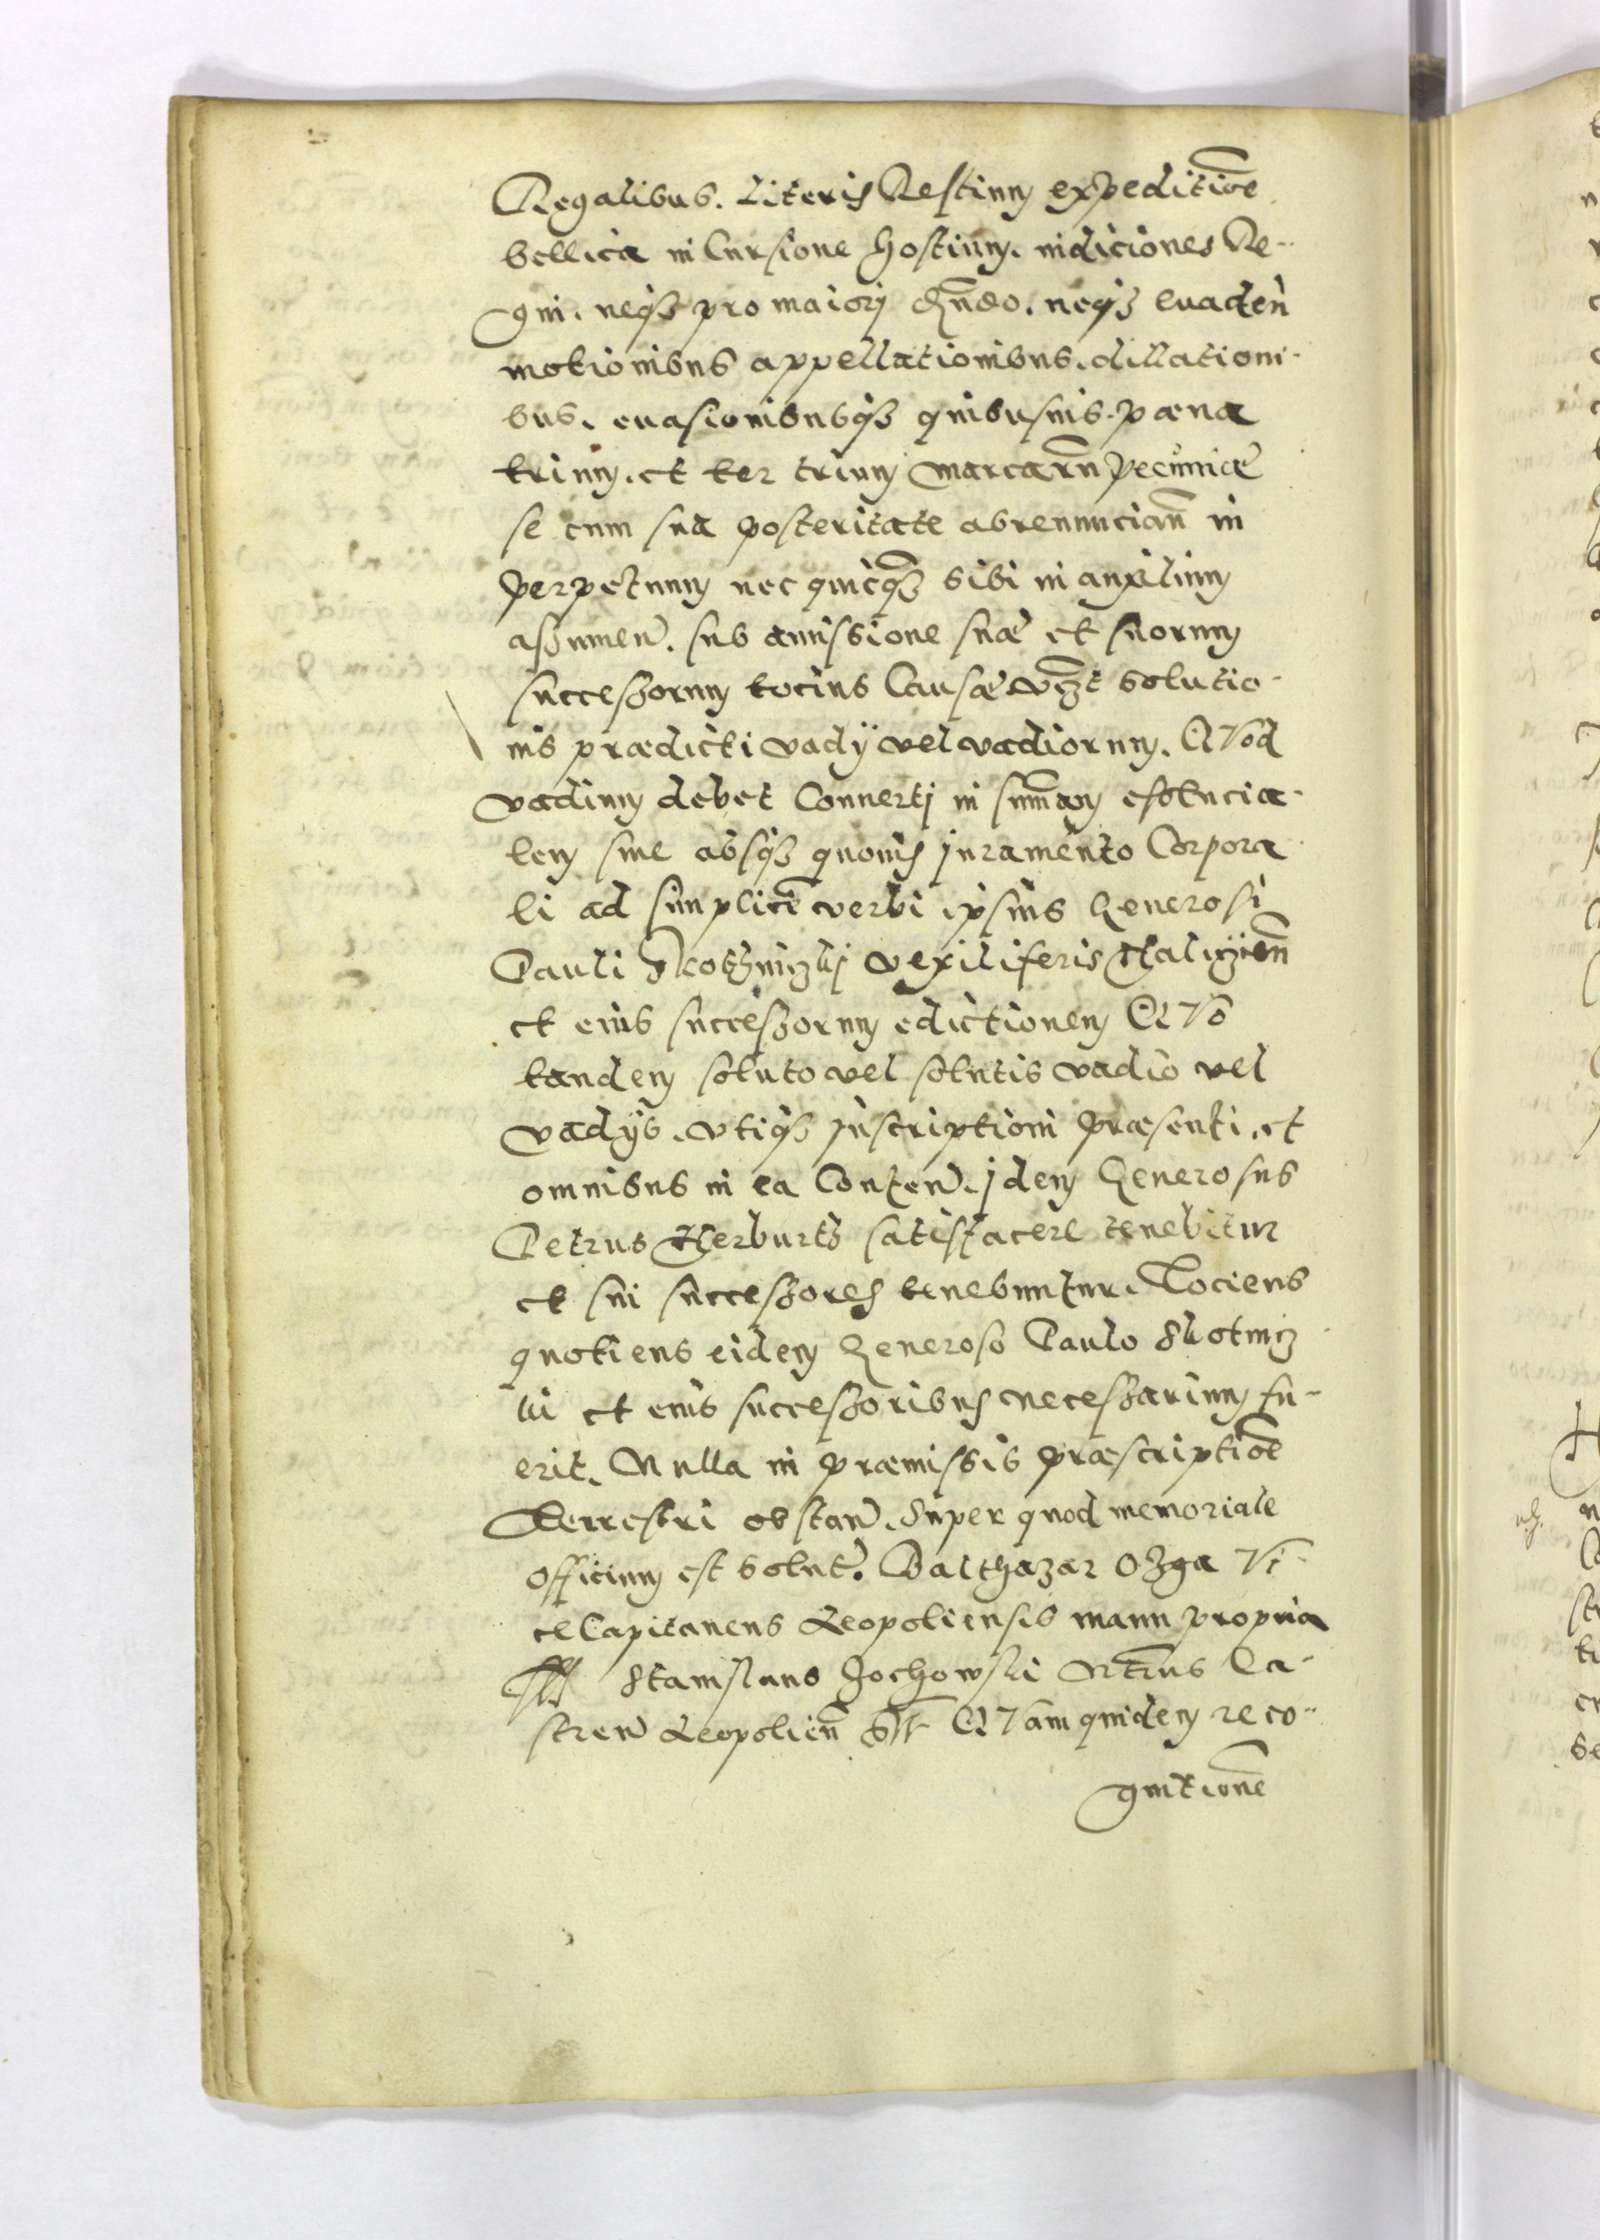 Regalibus. Literis Restium expeditione
bellica in Cursione hostium. indiciones Re-
gni. neqz pro maiori gndo. neqz euaden
motionibus appellationibus. dillationi-
bus. euasionibusqz quibusuis. pæna
trium. et ter trium marcarn pecuniæ
se cum sua posteritate abrenuncian in
perpetuum nec quicqz sibi in auxilium
assumen. sub amissione suæ et suorum
successorum tocius Causæ vzt solutio-
nis prædicti vadÿ vel vadiorum. QVod
vadium debet Conuerti in summam esolucia-
lem siue absqz quouis juramento Corpora
li ad simplicē verbi ipsius Generosi
Pauli vexiliferis Haliczien
et eius successorum edictionem QVo
tandem soluto vel solutis vadio vel
vadÿs. vtiqz Inscriptioni præsenti. et
omnibus in ea Conten. jdem Generosus
Petrus Herburth satisfacere tenebitur
et sui successores tenebuntur. Tociens
quotiens eidem Generoso Paulo Skotnicz
ki et eius successoribus necessarium fu-
erit. Nulla in præmissis præscriptione
Terrestri obstan. Super quod memoriale
officium est solut. Balthazar Ozga Vi-
ceCapitaneus Leopoliensis manu propria
Stanislaus Zochowski Ntrius Ca-
stren Leopolien sst QVam quidem reco-
gnitione